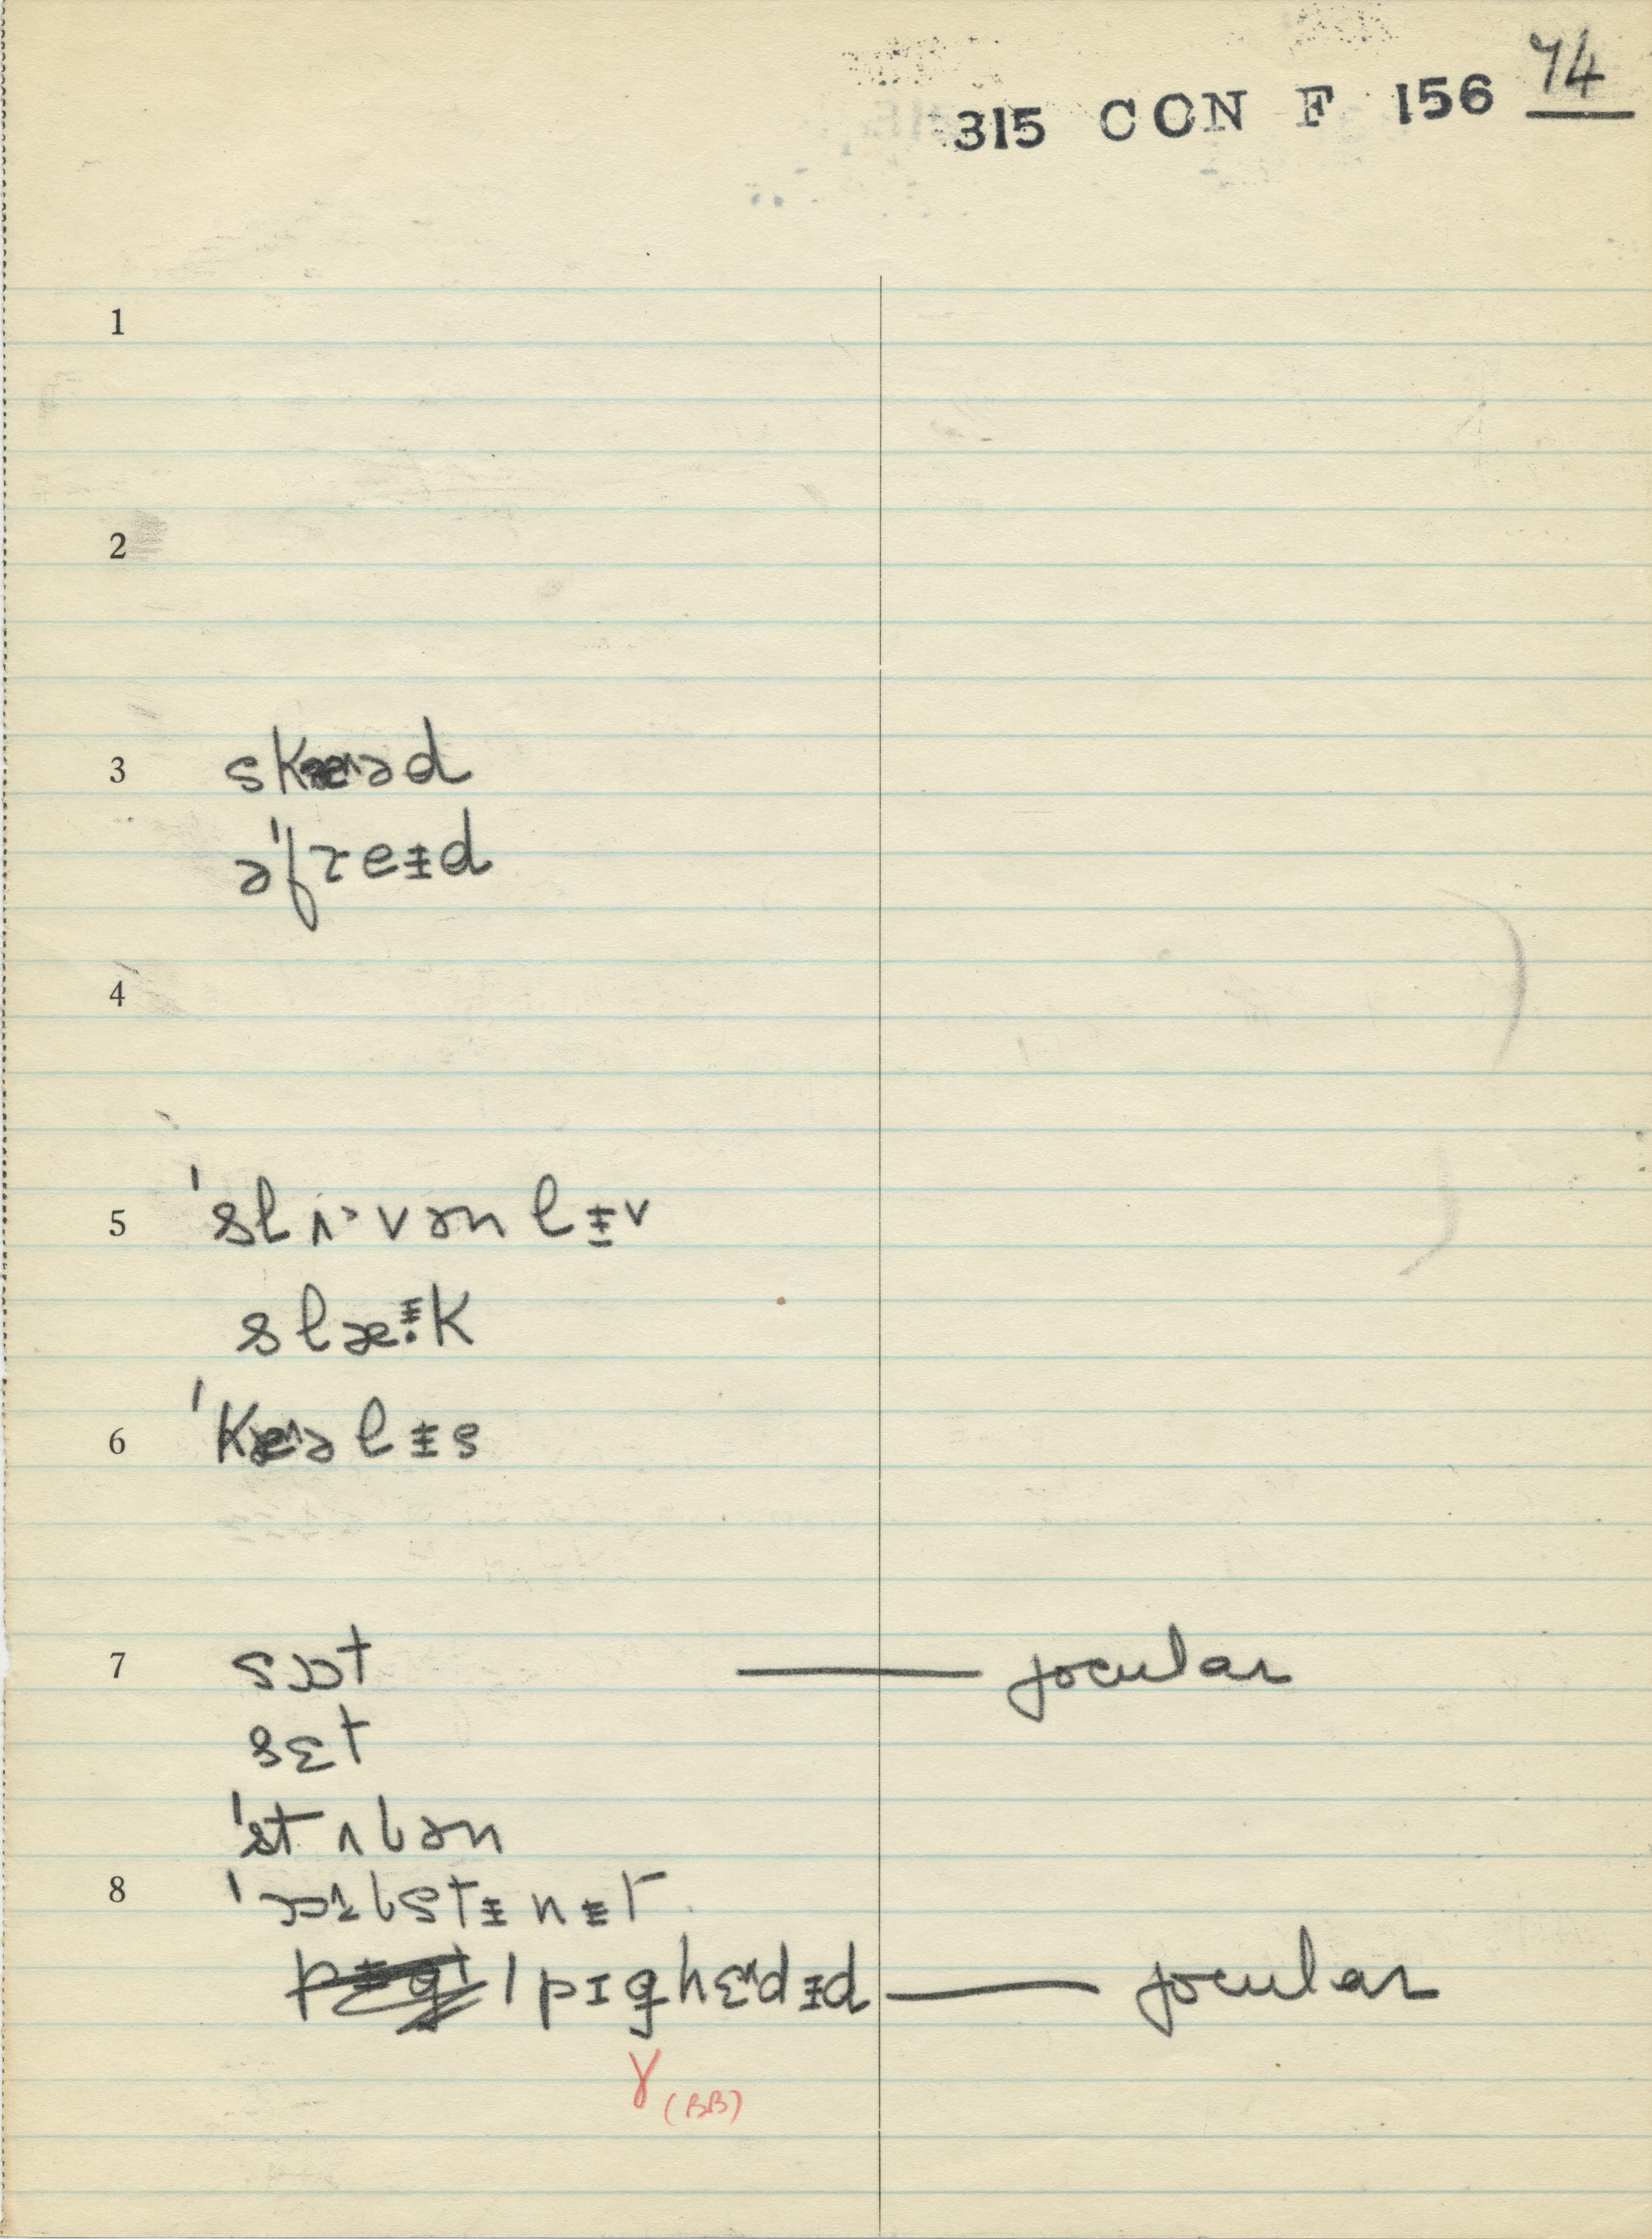 315 CON F 156 74
1
2
3 skæ˄əd
ə'freɨd
4
5 'slʌ·vənlɨ˅
slæᵻ̇k
6 'kæ˄əlɨs
7 sɒt — jocular
sɛt
'stʌbən
8 'ɒ˄bstɨnɨt
pɪghɛ˄dɨd — jocular
ɣ (BB)